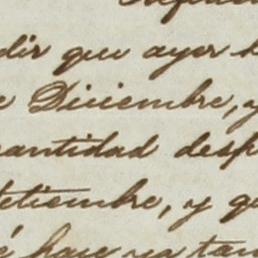 dir que ayer
Diciembre, y
cantidad desp
Setiembre, y qu
hace ya tan